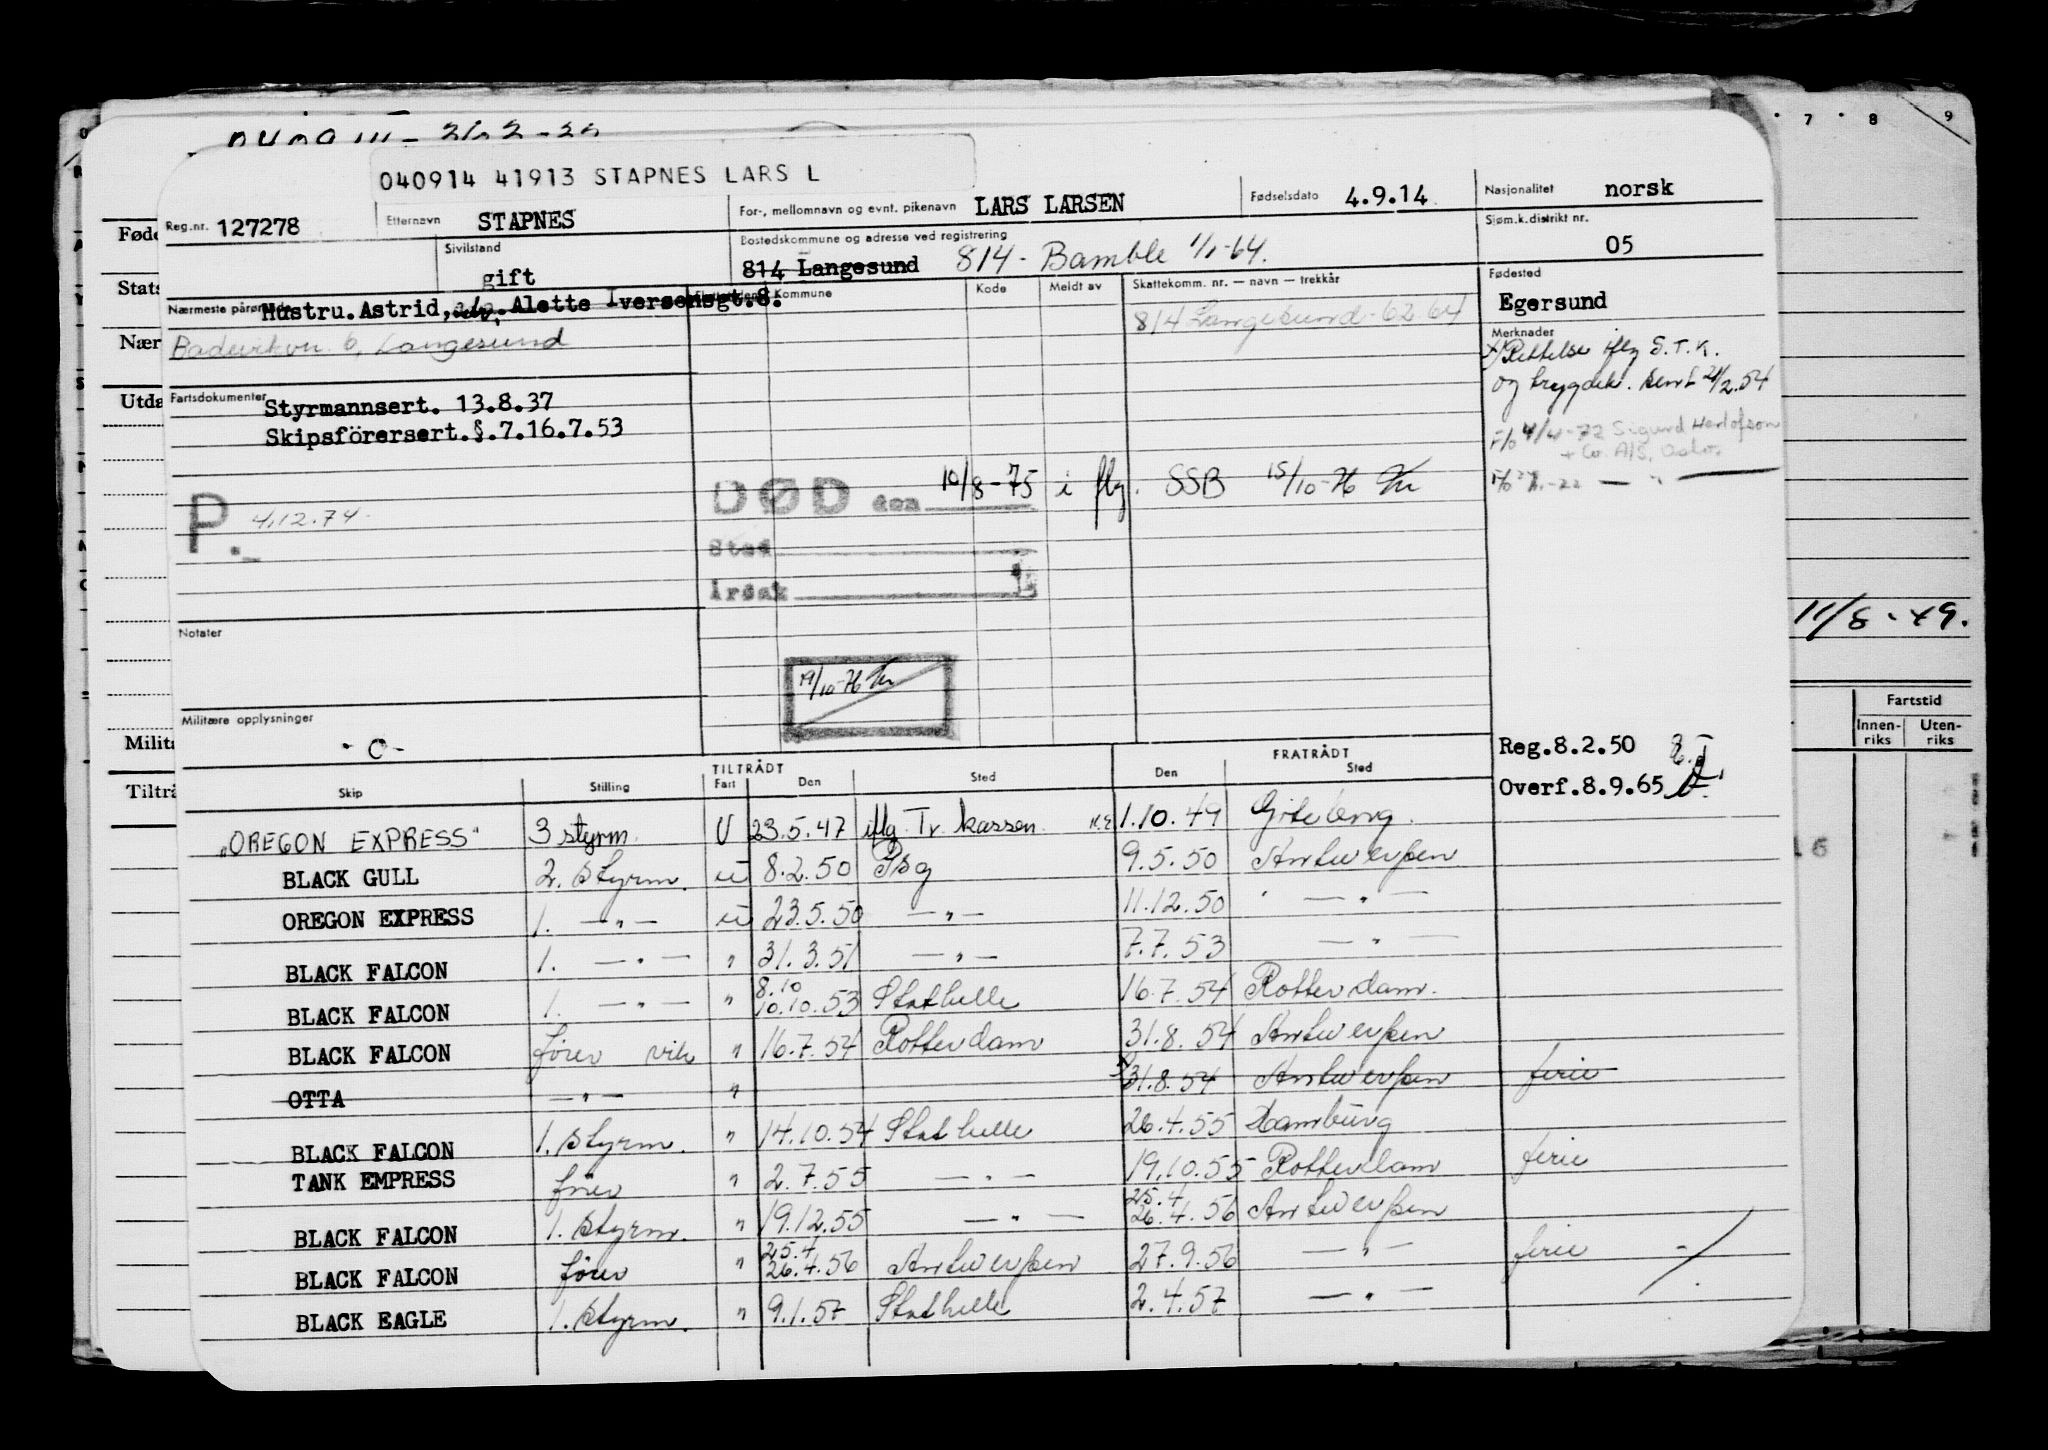 040914 41913 STAPNES LARS L
Reg.nr. 127278
Etternavn STAPNES
For-, mellomnavn og evnt. pikenavn LARS LARSEN
Fødselsdato 4.9.14
Nasjonalitet norsk
Sivilstand gift
Bostedskommune og adresse ved registrering
814 Langesund 814 - Bamble 1/1-64.
Sjøm.k.distrikt nr. 05
Nærmeste pårørende Hustru.Astrid, adr. Alette Iversensgt.8.
Badevikvn. 6, Langesund
Kommune
Kode
Meldt av
Skattekomm. nr. — navn — trekkår
814 Langesund - 62 64
Fødested
Egersund
Merknader
x) Rettelse iflg S.T.K.
og trygdek. sent 24/2.54
Sigurd Herlofson
+ Co. A/S, Oslo.
Fartsdokumenter Styrmannsert. 13.8.37
Skipsförersert.§.7.16.7.53
P. 4.12.74
DØD den 10/8-75 i flg. SSB 15/10-76
Sted
Årsak
Notater
19/10-76
Militære opplysninger
- O -
Reg.8.2.50
Overf.8.9.65
TILTRÅDT
FRATRÅDT
Skip Stilling Fart Den Sted Den Sted
"OREGON EXPRESS" 3 styrm. U 23.5.47 iflg. Tr. kassen. 1.10.49 Göteborg.
BLACK GULL 2. styrm. u 8.2.50 Psg 9.5.50 Antwerpen
OREGON EXPRESS 1. — " — u 23.5.50 — " — 11.12.50 — " —
BLACK FALCON 1. — " — " 31.3.51 — " — 7.7.53 — " —
BLACK FALCON 1. — " — " 8.10 10.10.53 Stathelle 16.7.54 Rotterdam.
BLACK FALCON fører vik " 16.7.54 Rotterdam 31.8.54 Antwerpen
OTTA — " — " 31.8.54 Antwerpen ferie
BLACK FALCON 1. styrm. " 14.10.54 Stathelle 26.4.55 Hamburg
TANK EMPRESS fører " 2.7.55 — " — 19.10.55 Rotterdam ferie
BLACK FALCON 1. styrm. " 19.12.55 — " — 25.4 26.4.56 Antwerpen
BLACK FALCON fører " 25.4 26.4.56 Antwerpen 27.9.56 — " — ferie
BLACK EAGLE 1. styrm. " 9.1.57 Stathelle 2.4.57 — " —
Fød
Stats
Nær
Utda
Milit
Tiltr
7 8 9
11/8-49.
Fartstid
Innen-
riks
Uten-
riks
16